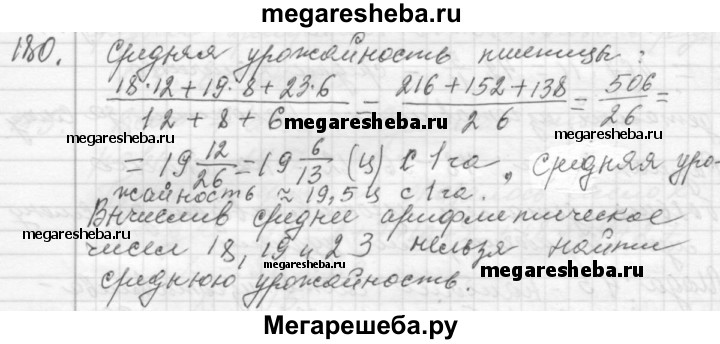 megaresheba.ru
180. Средняя урожайность пшеницы:
18·12+19·8+23·6 / 12+8+6 = 216+152+138 / 26 = 506/26 =
megaresheba.ru
megaresheba.ru
megaresheba.ru
= 19 12/26 = 19 6/13 (ц) с 1 га, Средняя уро-
жайность ≈ 19,5 ц с 1 га.
Вычислив среднее арифметическое
megaresheba.ru
чисел 18, 19 и 23 нельзя найти
megaresheba.ru
megaresheba.ru
среднюю урожайность.
Мегарешеба.ру